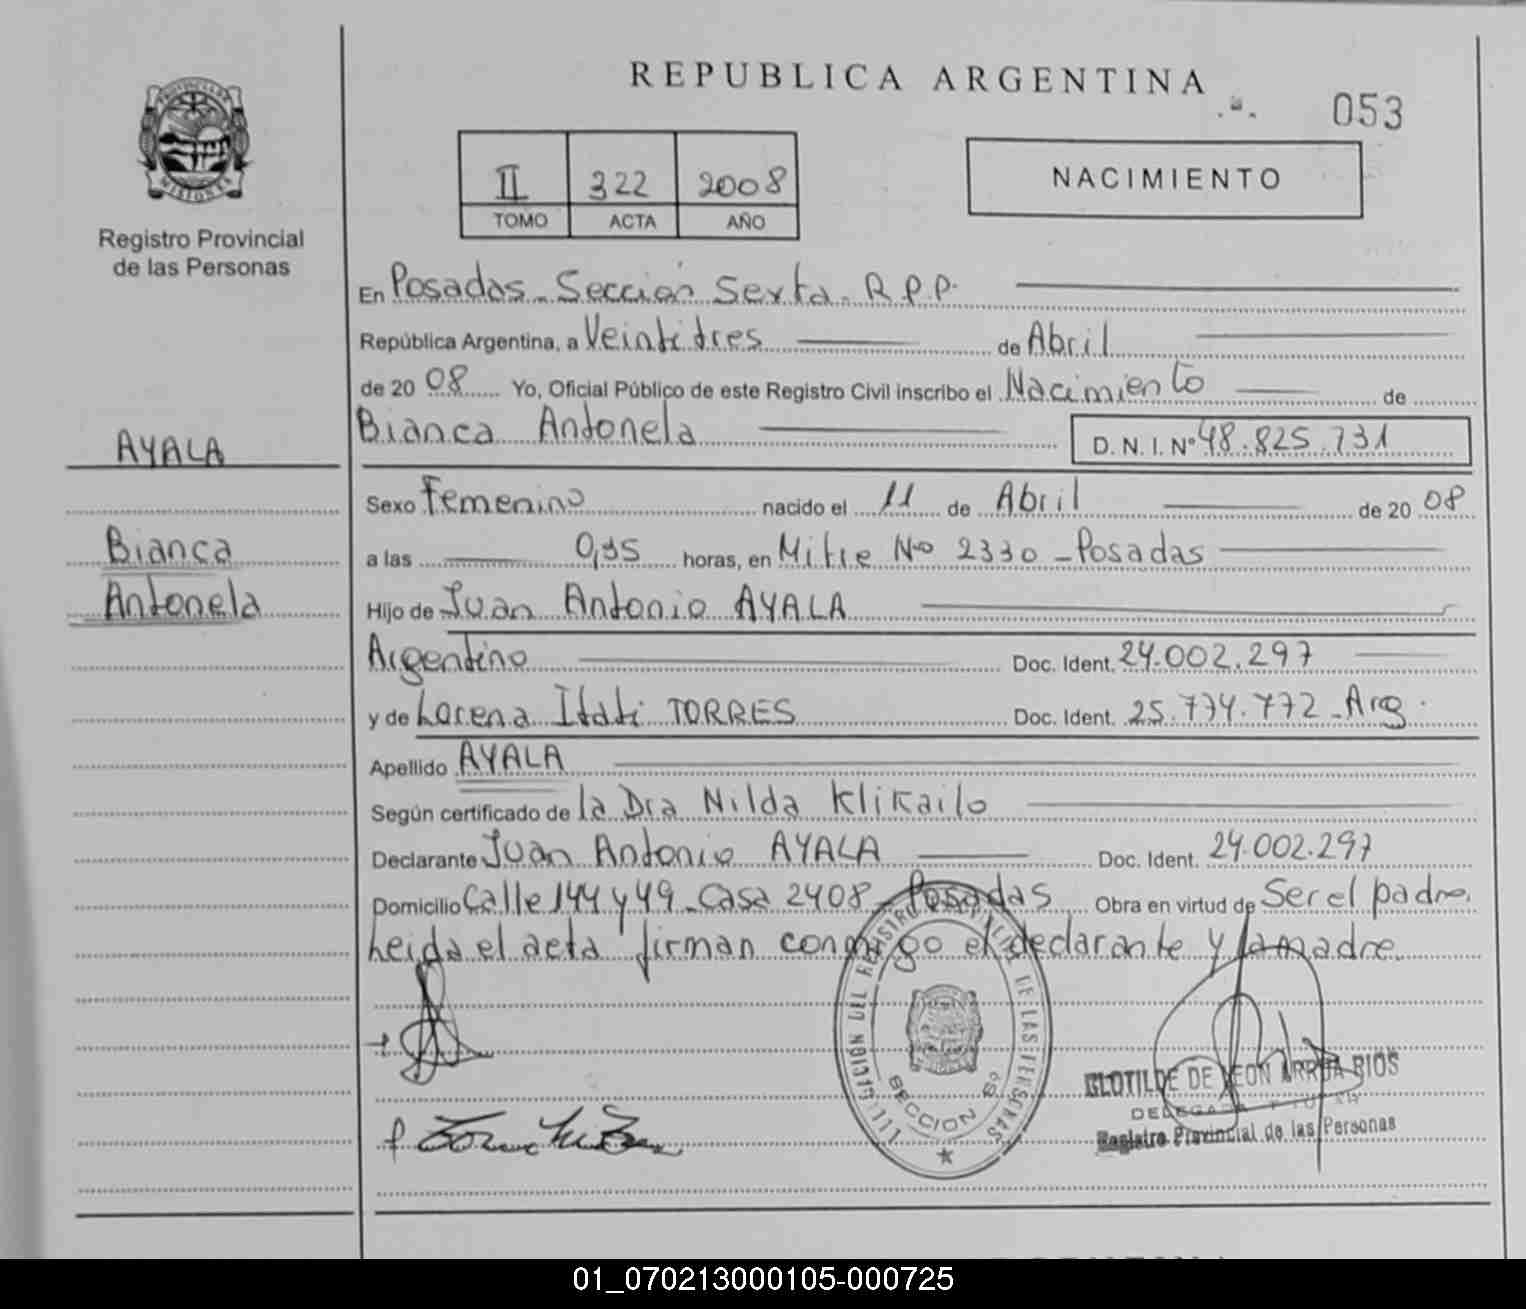 REPUBLICA ARGENTINA
053
PROVINCIA DE
MISIONES
Registro Provincial
de las Personas
II 322 2008
TOMO ACTA AÑO
NACIMIENTO
En Posadas - Sección Sexta - R.P.P.
República Argentina, a Veintitres de Abril
de 20 08 Yo, Oficial Público de este Registro Civil inscribo el Nacimiento de
Bianca Antonela D. N. I. Nº 48.825.731
AYALA
Bianca
Antonela
Sexo Femenino nacido el 11 de Abril de 20 08
a las horas, en Mitre Nº 2330 - Posadas
Hijo de Juan Antonio AYALA
Argentino Doc. Ident. 24.002.297
y de Lorena Itati TORRES Doc. Ident. 25.774.772 - Arg.
Apellido AYALA
Según certificado de la Dra Nilda Klikailo
Declarante Juan Antonio AYALA Doc. Ident. 24.002.297
Domicilio Calle 144 y 49 - Casa 2408 - Posadas Obra en virtud de Ser el padre.
heida el acta firman conmigo el declarante y la madre.
DEL REGISTRO DE LAS PERSONAS
SECCION 6º
CLOTILDE DE LEON RIOS
DELEGADA
Registro Provincial de las Personas
01_070213000105-000725